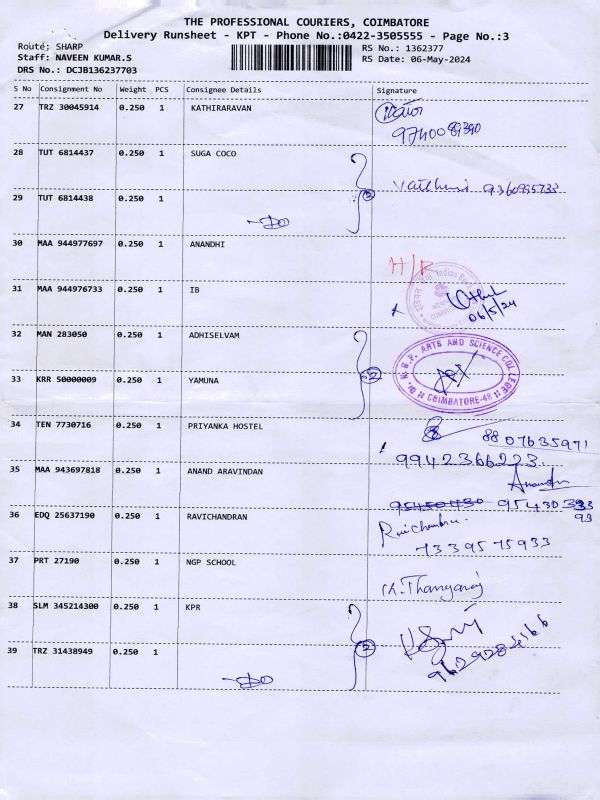 THE PROFESSIONAL COURIERS, COIMBATORE
Delivery Runsheet - KPT - Phone No.:0422-3505555 - Page No.:3
Route: SHARP
RS No.: 1362377
Staff: NAVEEN KUMAR.S
RS Date: 06-May-2024
DRS No.: DCJB136237703
S No Consignment No Weight PCS Consignee Details Signature
27 TRZ 30045914 0.250 1 KATHIRARAVAN
9740089390
28 TUT 6814437 0.250 1 SUGA COCO
9360995733
29 TUT 6814438 0.250 1
2
Do
30 MAA 944977697 0.250 1 ANANDHI
H/K
31 MAA 944976733 0.250 1 IB
06/5/24
32 MAN 283050 0.250 1 ADHISELVAM
N.G.P. ARTS AND SCIENCE COLLEGE
COIMBATORE-48
33 KRR 50000009 0.250 1 YAMUNA
2
34 TEN 7730716 0.250 1 PRIYANKA HOSTEL
8807635971
9942366223
35 MAA 943697818 0.250 1 ANAND ARAVINDAN
Anandh
95430393
93
36 EDQ 25637190 0.250 1 RAVICHANDRAN
Ravichandran
7339575933
37 PRT 27190 0.250 1 NGP SCHOOL
K. Thangaraj
38 SLM 345214300 0.250 1 KPR
39 TRZ 31438949 0.250 1
2
Do